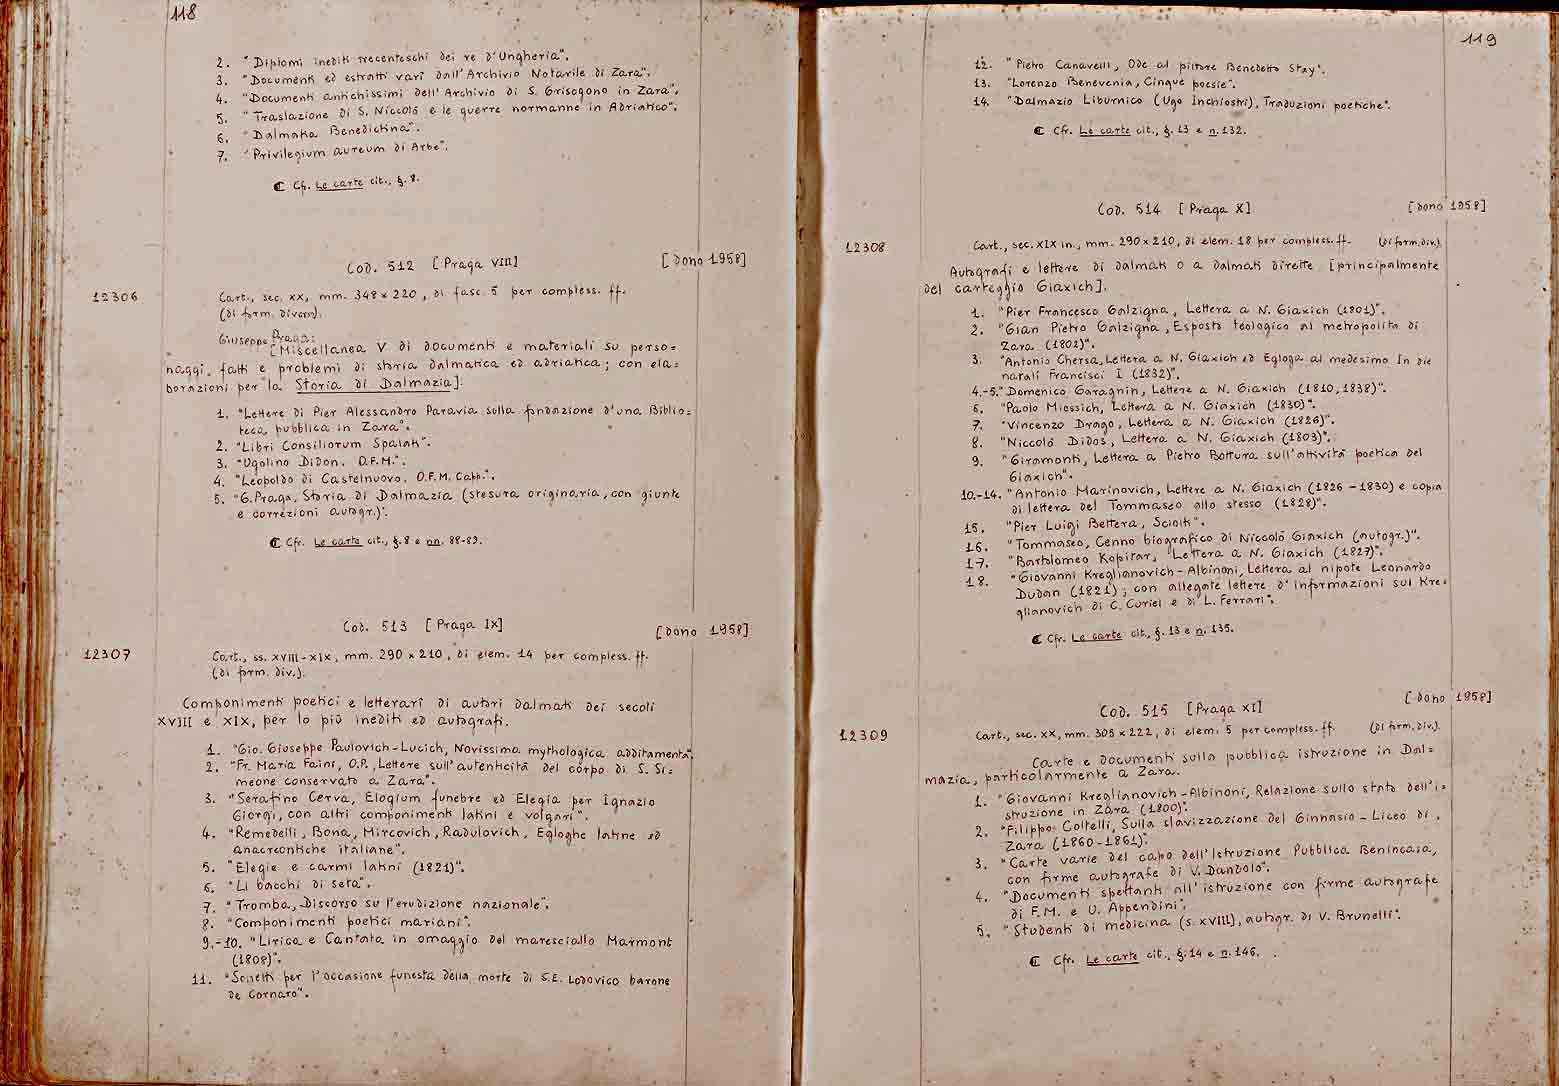 118
2. "Diplomi inediti trecenteschi dei re d'Ungheria".
3. "Documenti ed estratti varî dall'Archivio Notarile di Zara".
4. "Documenti antichissimi dell'Archivio di S. Grisogono in Zara".
5. "Traslazione di S. Niccolò e le guerre normanne in Adriatico".
6. "Dalmatia Benedictina".
7. "Privilegium aureum di Arbe".
Cfr. Le carte cit., §. 8.
Cod. 512 [Praga VIII] [Dono 1958]
12306 Cart., sec. XX, mm. 348 x 220, di fasc. 5 per compless. ff.
(di form. diversi).
Giuseppe Praga:
[Miscellanea V di documenti e materiali su perso=
naggi, fatti e problemi di storia dalmatica ed adriatica; con ela=
borazioni per la Storia di Dalmazia].
1. "Lettere di Pier Alessandro Paravia sulla fondazione d'una Biblio=
teca pubblica in Zara".
2. "Libri Consiliorum Spalati".
3. "Ugolino Didon. O.F.M.".
4. "Leopoldo di Castelnuovo. O.F.M. Capp.".
5. "G. Praga, Storia di Dalmazia (stesura originaria, con giunte
e correzioni autogr.)".
Cfr. Le carte cit., §. 8 e nn. 88-89.
Cod. 513 [Praga IX] [Dono 1958]
12307 Cart., ss. XVIII-XIX, mm. 290 x 210, di elem. 14 per compless. ff.
(di form. div.).
Componimenti poetici e letterarî di autori dalmati dei secoli
XVIII e XIX, per lo più inediti ed autografi.
1. "Gio. Giuseppe Paulovich-Lucich, Novissima mythologica additamenta".
2. "Fr. Maria Faini, O.P., Lettere sull'autenticità del corpo di S. Si=
meone conservato a Zara".
3. "Serafino Cerva, Elogium funebre ed Elegia per Ignazio
Giorgi, con altri componimenti latini e volgari".
4. "Remedelli, Bona, Mircovich, Radulovich, Egloghe latine ed
anacreontiche italiane".
5. "Elegie e carmi latini (1821)".
6. "Li bacchi di seta".
7. "Tromba, Discorso su l'erudizione nazionale".
8. "Componimenti poetici mariani".
9.-10. "Lirica e Cantata in omaggio del maresciallo Marmont
(1808)".
11. "Sonetti per l'occasione funesta della morte di S.E. Lodovico barone
de Cornaro".
119
12. "Pietro Canavelli, Ode al pittore Benedetto Stay".
13. "Lorenzo Benevenia, Cinque poesie".
14. "Dalmazio Liburnico (Ugo Inchiostri), Traduzioni poetiche".
Cfr. Le carte cit., §. 13 e n. 132.
Cod. 514 [Praga X] [Dono 1958]
12308 Cart., sec. XIX in., mm. 290 x 210, di elem. 18 per compless. ff. (di form. div.).
Autografi e lettere di dalmati o a dalmati dirette [principalmente
del carteggio Giaxich].
1. "Pier Francesco Galzigna, Lettera a N. Giaxich (1801)".
2. "Gian Pietro Galzigna, Esposto teologico al metropolita di
Zara (1802)".
3. "Antonio Chersa, Lettera a N. Giaxich ed Egloga al medesimo In die
natali Francisci I (1832)".
4.-5. "Domenico Garagnin, Lettere a N. Giaxich (1810, 1838)".
6. "Paolo Miossich, Lettera a N. Giaxich (1830)".
7. "Vincenzo Drago, Lettera a N. Giaxich (1826)".
8. "Niccolò Didos, Lettera a N. Giaxich (1803)".
9. "Giramonti, Lettera a Pietro Bottura sull'attività poetica del
Giaxich".
10.-14. "Antonio Marinovich, Lettere a N. Giaxich (1826-1830) e copia
di lettera del Tommaseo allo stesso (1828)".
15. "Pier Luigi Bettera, Sciolti".
16. "Tommaseo, Cenno biografico di Niccolò Giaxich (autogr.)".
17. "Bartolomeo Kopitar, Lettera a N. Giaxich (1827)".
18. "Giovanni Kreglianovich-Albinoni, Lettera al nipote Leonardo
Dudan (1821); con allegate lettere d'informazioni sul Kre=
glianovich di C. Curiel e di L. Ferrari".
Cfr. Le carte cit., §. 13 e n. 135.
Cod. 515 [Praga XI] [Dono 1958]
12309 Cart., sec. XX, mm. 305 x 222, di elem. 5 per compless. ff. (di form. div.).
Carte e documenti sulla pubblica istruzione in Dal=
mazia, particolarmente a Zara.
1. "Giovanni Kreglianovich-Albinoni, Relazione sullo stato dell'i=
struzione in Zara (1800)".
2. "Filippo Coltelli, Sulla slavizzazione del Ginnasio-Liceo di
Zara (1860-1861)".
3. "Carte varie del capo dell'Istruzione Pubblica Benincasa,
con firme autografe di V. Dandolo".
4. "Documenti spettanti all'istruzione con firme autografe
di F.M. e U. Appendini".
5. "Studenti di medicina (s. XVIII), autogr. di V. Brunelli".
Cfr. Le carte cit., §. 14 e n. 146.